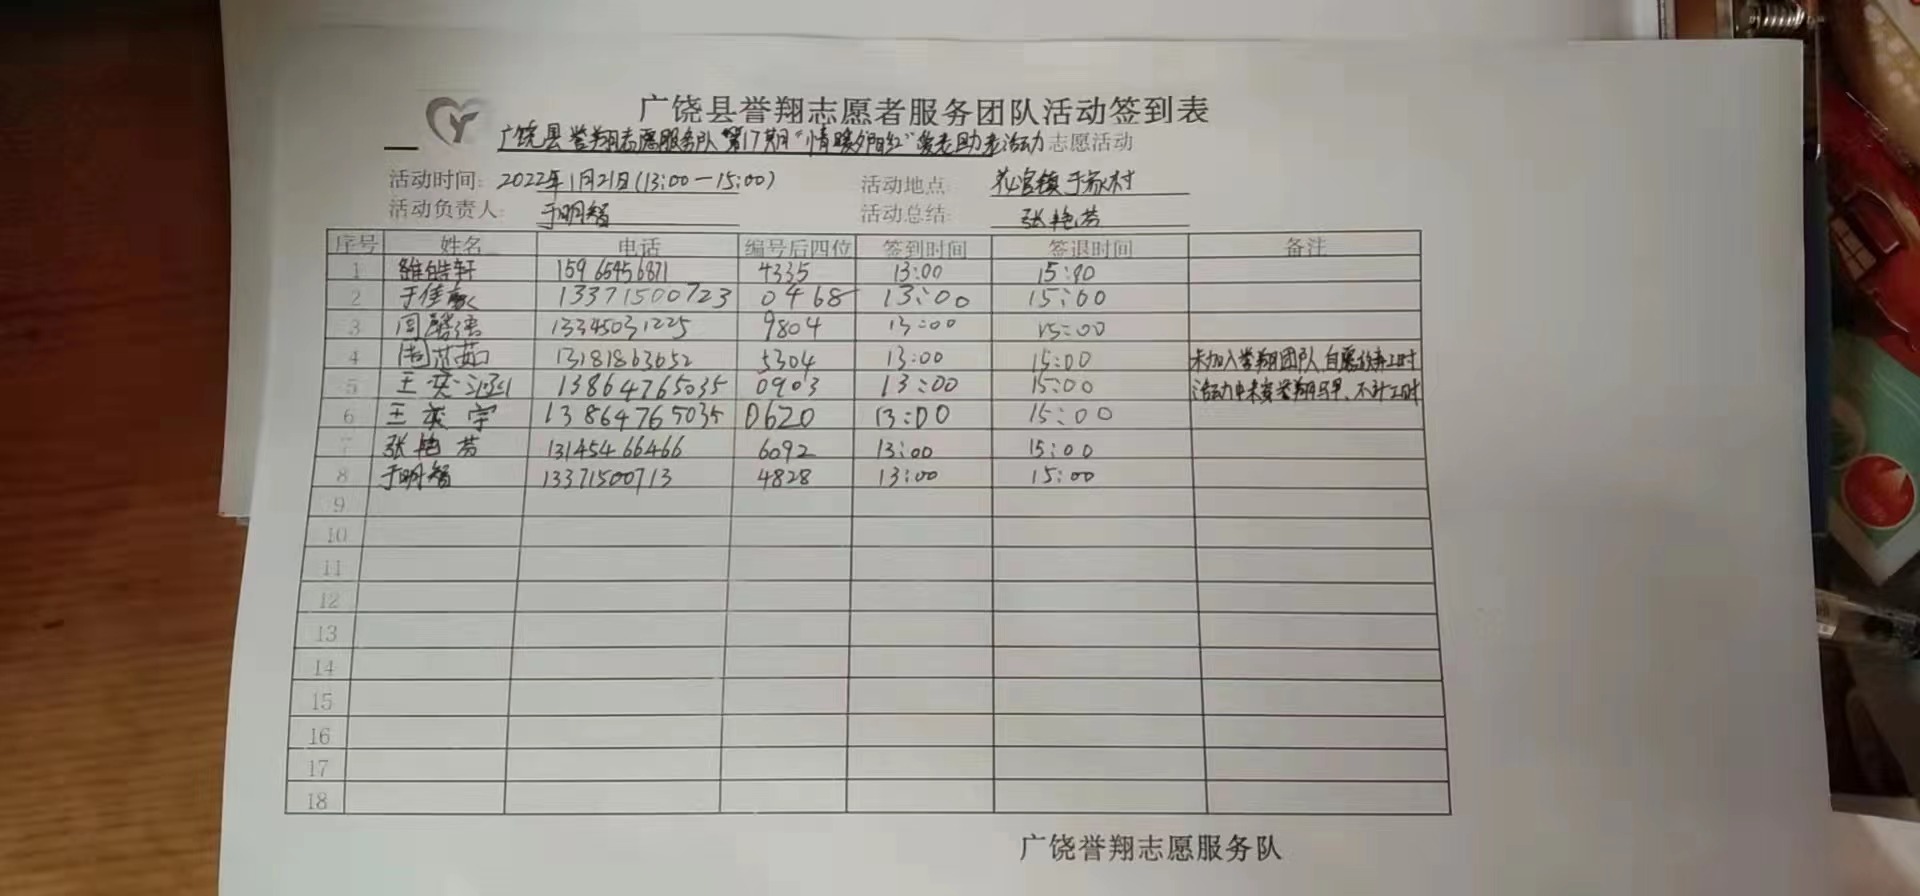 广饶县誉翔志愿者服务团队活动签到表
广饶县誉翔志愿服务队"第17期"情暖夕阳红"爱老助老活动 志愿活动
活动时间: 2022年1月21日(13:00—15:00) 活动地点: 花官镇于家村
活动负责人: 于明智 活动总结: 张艳芳
序号 姓名 电话 编号后四位 签到时间 签退时间 备注
1 皓轩 15965956871 4335 13:00 15:00
2 于佳 13371500723 0468 13:00 15:00
3 闫 13345031225 9804 13:00 15:00
4 周芯茹 13181863652 5304 13:00 15:00 未加入誉翔团队,自愿放弃工时
5 王奕涵 13864765035 0903 13:00 15:00 活动中未穿誉翔马甲、不计工时
6 王奕宇 13864765035 0620 13:00 15:00
7 张艳芳 13145466466 6092 13:00 15:00
8 于明智 13371500713 4828 13:00 15:00
9
10
11
12
13
14
15
16
17
18
广饶誉翔志愿服务队